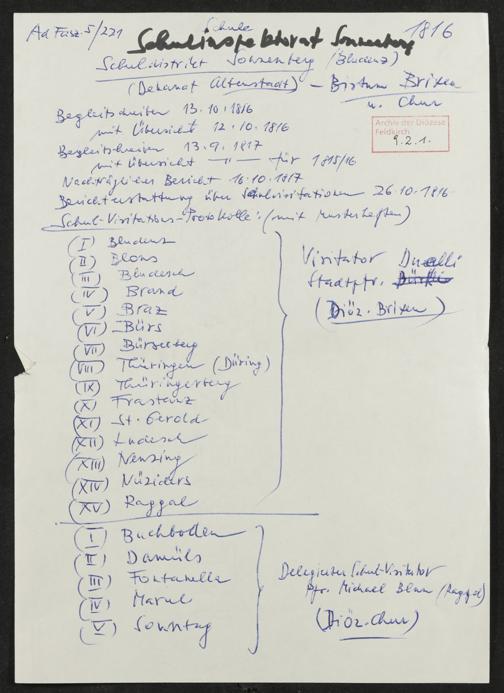 Ad Fasz. 5/221
Schule
1816
Schulinspektorat Sonnenberg
Schuldistrikt Sonnenberg (Bludenz)
(Dekanat Altenstadt) – Bistum Brixen
u. Chur
Archiv der Diözese
Feldkirch
9.2.1.
Begleitschreiben 13.10.1816
mit Übersicht 12.10.1816
Begleitschreiben 13.9.1817
mit Übersicht —"— für 1815/16
Nachträglicher Bericht 16.10.1817
Berichterstattung über Schulvisitationen 26.10.1816
Schul-Visitations-Protokolle: (mit Musterheften)
(I) Bludenz
(II) Blons
(III) Bludesch
(IV) Brand
(V) Braz
(VI) Bürs
(VII) Bürserberg
(VIII) Thüringen (Düring)
(IX) Thüringerberg
(X) Frastanz
(XI) St. Gerold
(XII) Ludesch
(XIII) Nenzing
(XIV) Nüziders
(XV) Raggal
Visitator
Stadtpfr.
(Diöz. Brixen)
(I) Buchboden
(II) Damüls
(III) Fontanella
(IV) Marul
(V) Sonntag
Delegierter Schul-Visitator
Pfr. Michael (Raggal)
(Diöz. Chur)